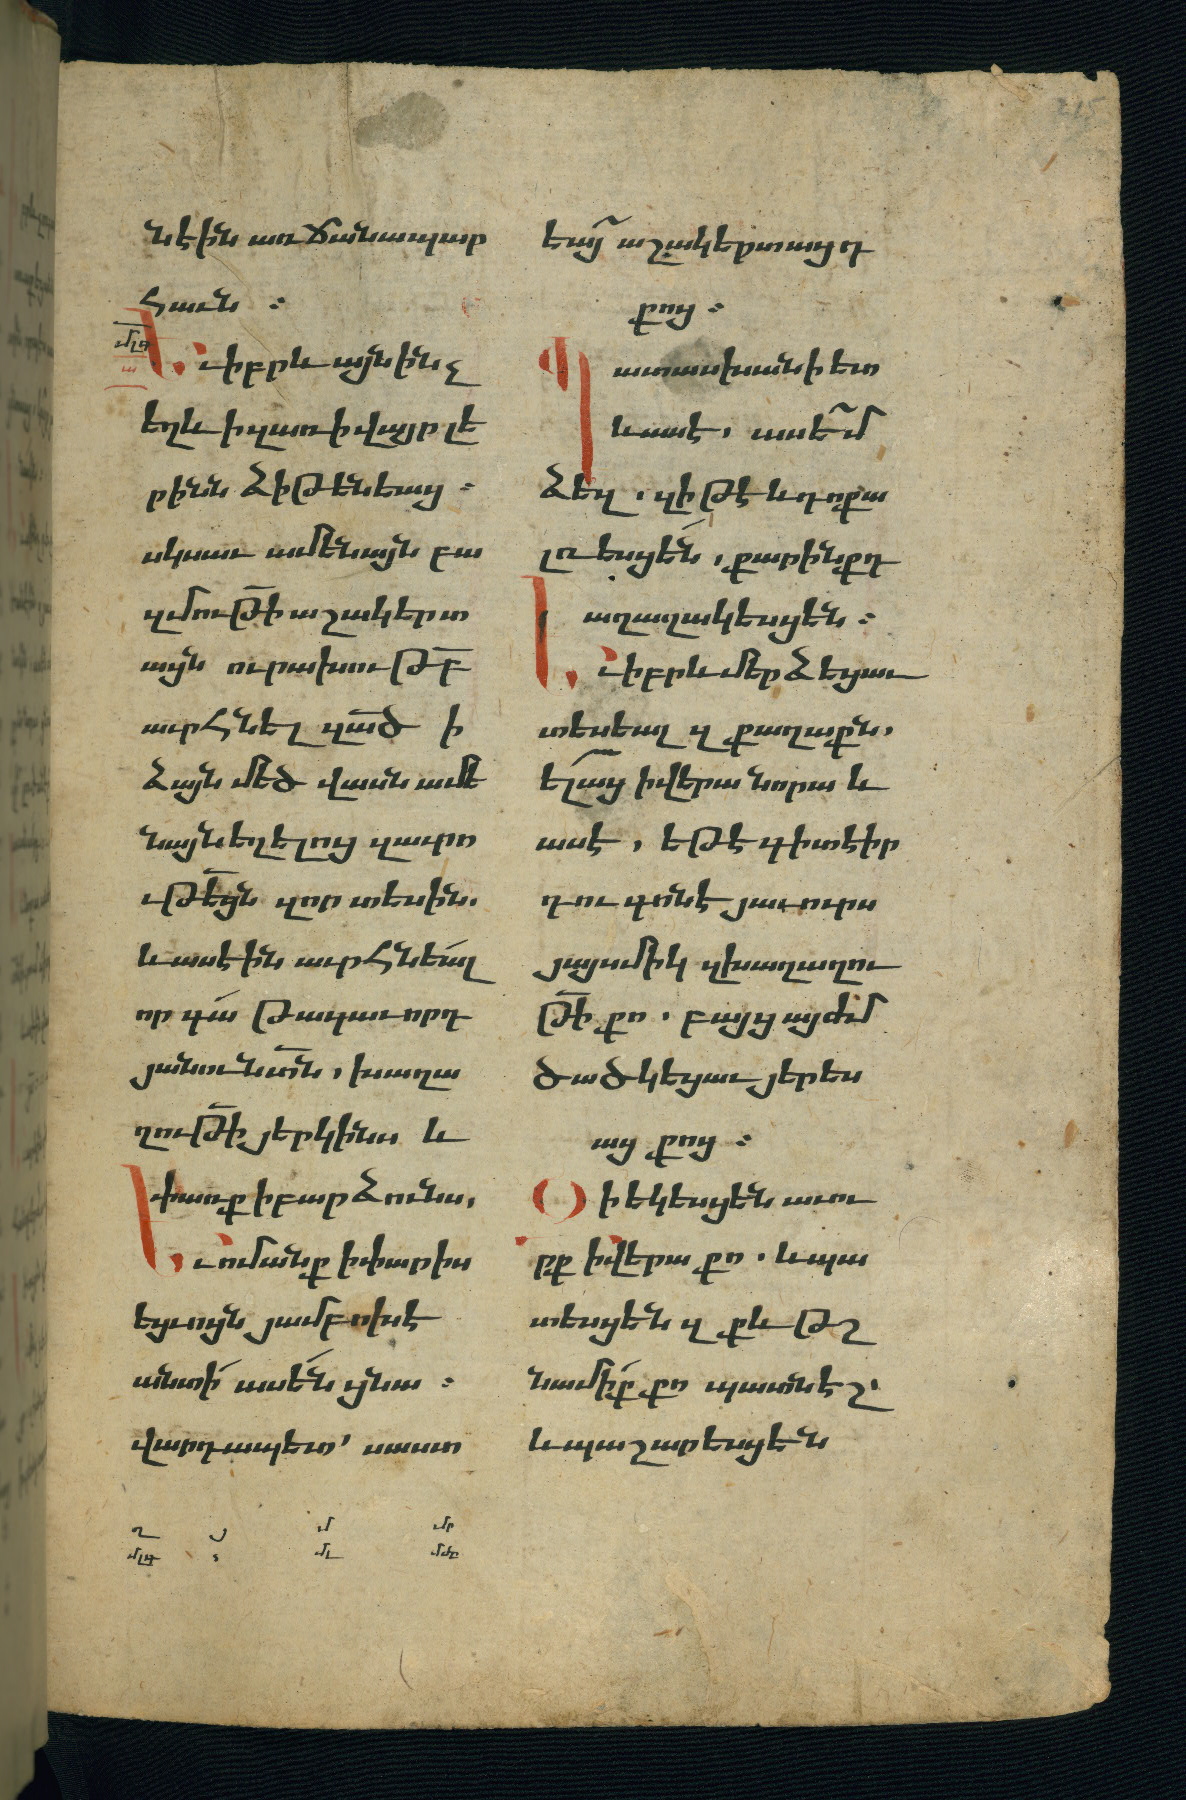 նէին առ ճանապար
հաւն ։
մլգ
Եւ իբրև այնինչ
եղև ի զառ ի վայր լե
րինն ձիթենեաց ։
սկսաւ ամենայն բա
զմութի՟ աշակերտ
այն ուրախութբ՟
աւրհնել զած՟ ի
ձայն մեծ վասն ամե
նայն եղելոց զաւրո
ւթեցն՟ զոր տեսին.
և ասէին աւրհնեալ
որ գա թագաւորդ
յանուն տն՟, խաղա
ղութի՟ յերկինս և
փառք ի բարձունս,
Եւ ոմանք ի փարիս
եցւոյն յամբոխէ
անտի ասեն ցնա ։
վարդապետ՝ սաստ
եա՜ աշակերտացդ
քոց ։
Պատասխանի ետ
և ասէ, ասե՜մ
ձեզ, զի թէ և դոքա
լռեսցեն, քարինքդ
աղաղակեսցեն ։
Եւ իբրև մերձեցաւ
տեսեալ զքաղաքն,
ելա՜ց ի վերա նորա և
ասէ, եթէ գիտէիր
դու գոնէ յաւուրս
յայսմիկ զխաղաղու
թի՟ քո. բայց այժմ
ծածկեցաւ յերես
աց քոց ։
Զի եկեսցեն աւու
րք ի վերա քո. և պա
տեսցեն զքև թշ
նամիք քո պատնէշ.
և պաշարեսցեն